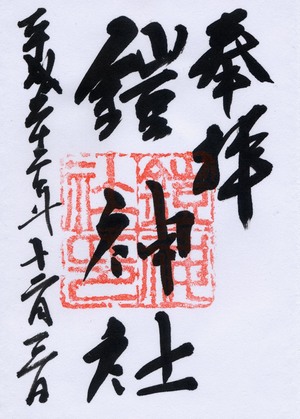 奉拝
鎧神社
平成二十 年十二月三日
鎧神社印